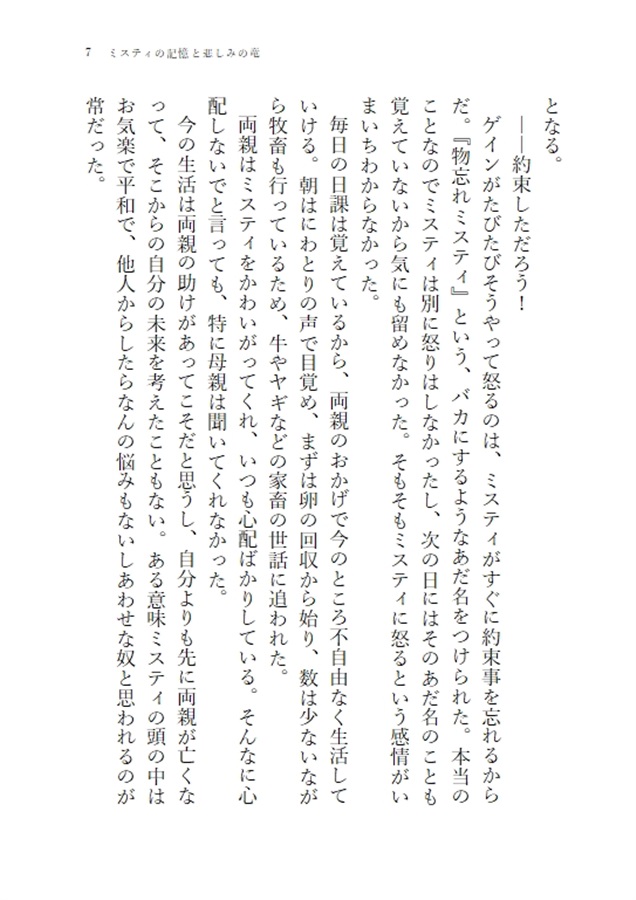 7 ミスティの記憶と悲しみの竜
となる。
――約束しただろう！
ゲインがたびたびそうやって怒るのは、ミスティがすぐに約束事を忘れるから
だ。『物忘れミスティ』という、バカにするようなあだ名をつけられた。本当の
ことなのでミスティは別に怒りはしなかったし、次の日にはそのあだ名のことも
覚えていないから気にも留めなかった。そもそもミスティに怒るという感情がい
まいちわからなかった。
毎日の日課は覚えているから、両親のおかげで今のところ不自由なく生活して
いける。朝はにわとりの声で目覚め、まずは卵の回収から始り、数は少ないなが
ら牧畜も行っているため、牛やヤギなどの家畜の世話に追われた。
両親はミスティをかわいがってくれ、いつも心配ばかりしている。そんなに心
配しないでと言っても、特に母親は聞いてくれなかった。
今の生活は両親の助けがあってこそだと思うし、自分よりも先に両親が亡くな
って、そこからの自分の未来を考えたこともない。ある意味ミスティの頭の中は
お気楽で平和で、他人からしたらなんの悩みもないしあわせな奴と思われるのが
常だった。